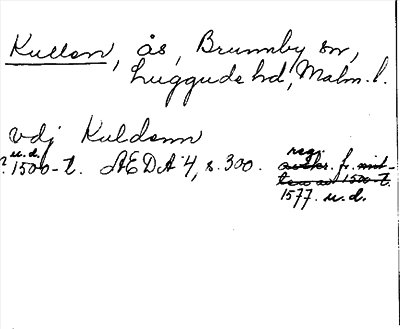 Kullen, ås, Brunnby sn,
Luggude hd, Malm. l.
vdj Kuldenn
u.d.
? 1500-t. ÆDA 4, s. 300. regi
avskr. fr. mit-
ten av 1500-t.
1577. u.d.